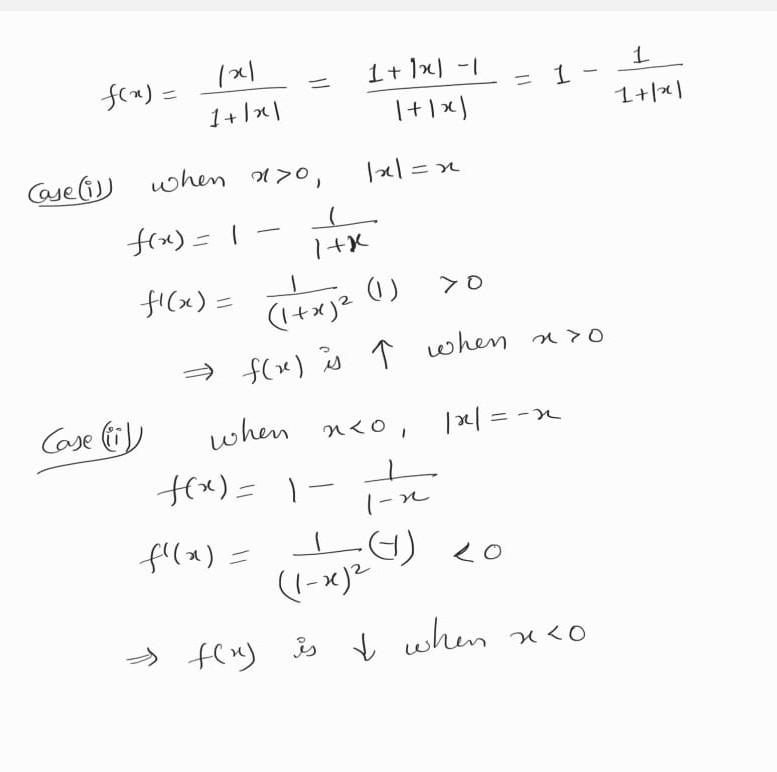 f(x) = |x| / 1+|x| = 1+|x|-1 / 1+|x| = 1 - 1 / 1+|x|
Case(i) when x>0, |x| = x
f(x) = 1 - 1 / 1+x
f'(x) = 1 / (1+x)² (1) >0
⇒ f(x) is ↑ when x>0
Case(ii) when x<0, |x| = -x
f(x) = 1 - 1 / 1-x
f'(x) = 1 / (1-x)² (-1) <0
⇒ f(x) is ↓ when x<0